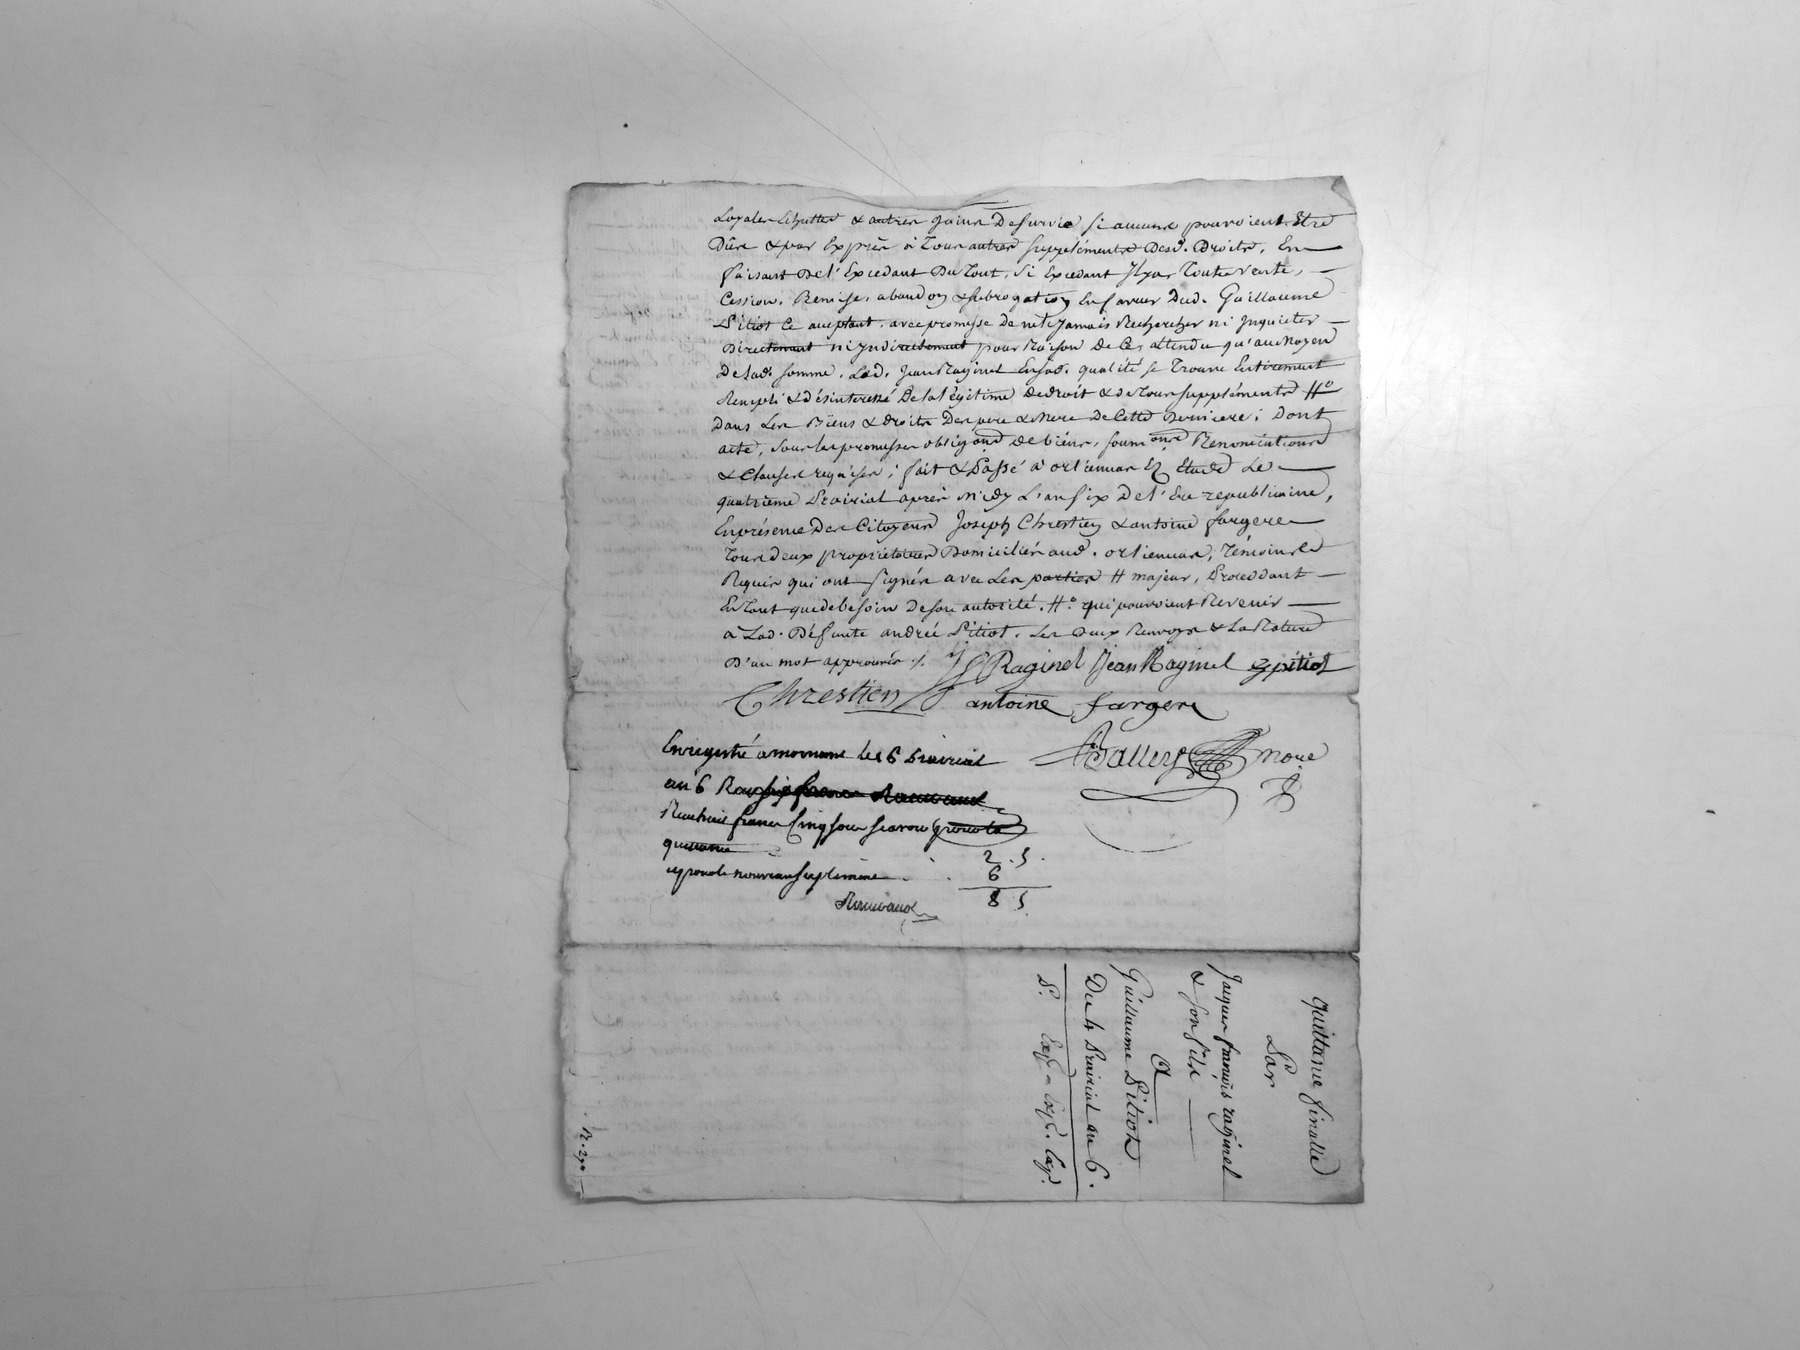 Loyales Echuttes & autres gains De survie si aucuns pouvoient Etre
Dûs & par Exprès à Tous autres supplements Desd. Droits, En
faisant De l'Excedant Du Tout, Si Excedant Il y a, Toute vente,
Cession, Remise, abandon & subrogation En faveur Dud. Guillaume
Pitiot Ce acceptant, avec promesse De ne le Jamais Rechercher ni Inquieter
Directement ni Indirectement pour Raison De Ce, attendu qu'au Moyen
De lad. somme, Led. Jean Raginel En sad. qualité se Trouve Entierement
Rempli & désinteressé De la légitime De droit & de Tous supplements #o
Dans Les Biens & droits Des pere & Mere De Cette Derniere; Dont
acte, sous les promesses obligaons de biens, soumons Renonciations
& Clauses requises; fait & Passé à orlienas Ez Etude Le
quatrieme Prairial après Midy L'an six De l'Ere republicaine,
En présence Des Citoyens Joseph Chrestien & antoine fargere
Tous deux propriétaires Domiciliés aud. orlienas, Témoins
Requis qui ont signés avec Les parties # majeur, Procedant
En Tant que de besoin De son autorité. #o qui pouvoient Revenir
à Lad. Défunte andrée Pitiot. Les deux Renvoys & La Rature
D'un mot approuvés ./. JF Raginel Jean Raginel G pitiot
Chrestien antoine fargere
Enregistré a mornant le 6 Prairial
an 6
Balley Nore
Recu trois francs Cinq sous
quittance 2. 5.
6
8 5
Quittance finalle
Par
Jacques françois raginel
& son fils
A
Guillaume Pitiot
Du 4 Prairial an 6.